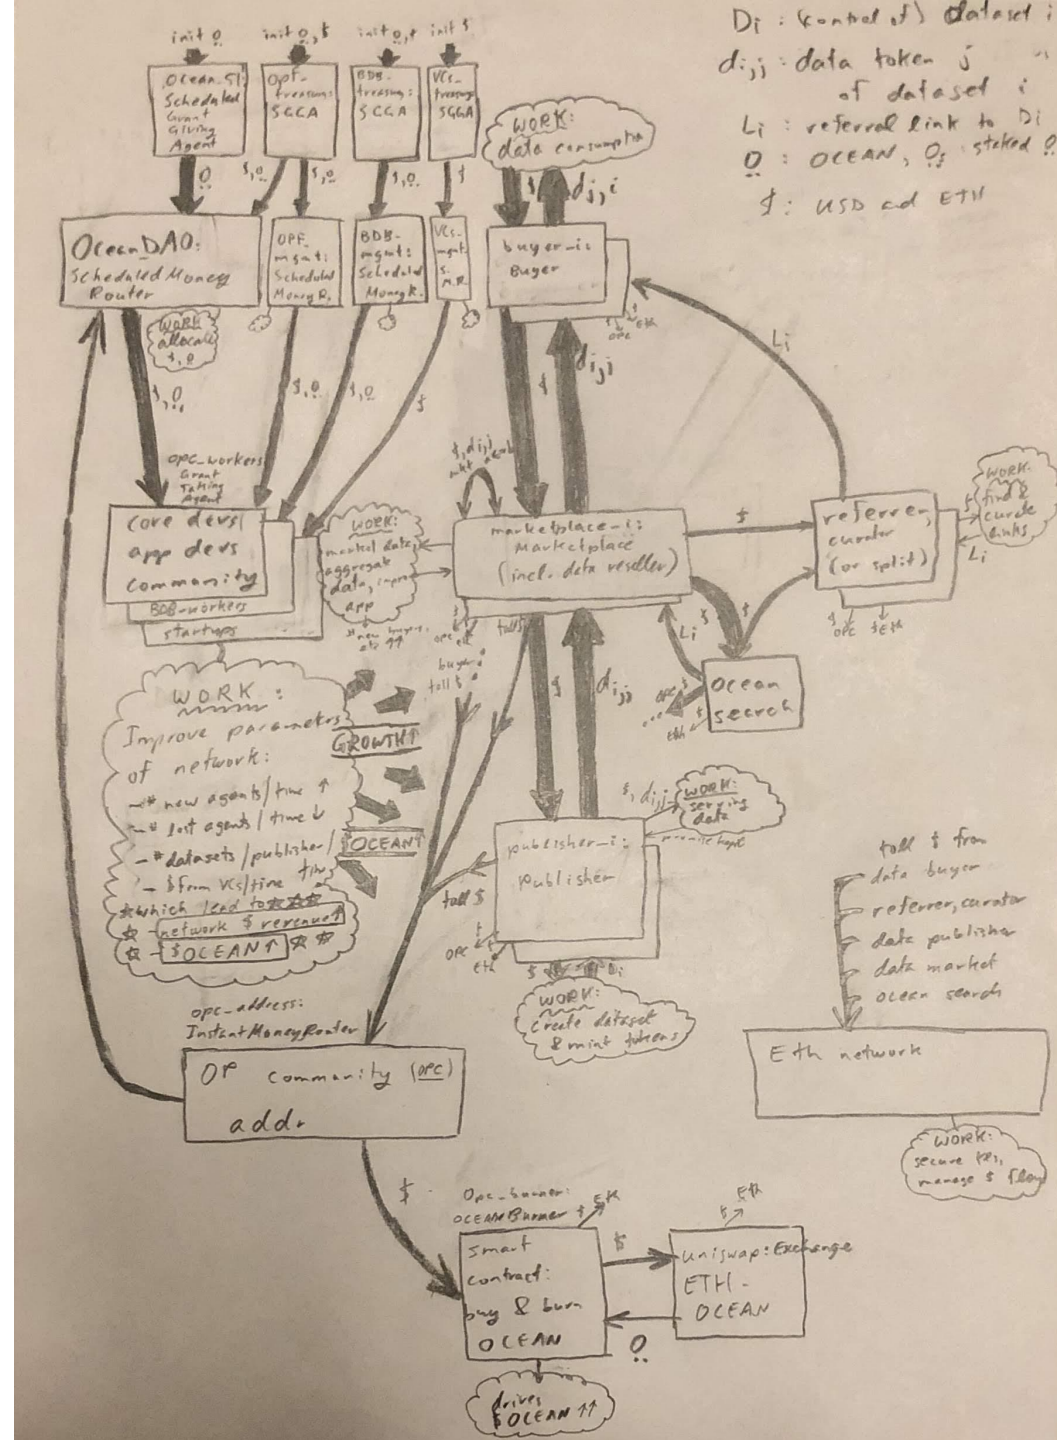 Di : (control of) dataset i
di,j : data token j
of dataset i
Li : referral link to Di
O : OCEAN, Os : staked O
$ : USD and ETH
init O
init O, $
init O, $
init $
Ocean_51:
Scheduled
Grant
Giving
Agent
OPF_
treasury:
SGGA
BDB_
treasury:
SGGA
VCs_
treasury:
SGGA
WORK:
data consumption
O
$,O
$,O
$,O
$
$
dj,i
OceanDAO:
Scheduled Money
Router
OPF_
mgmt:
Scheduled
Money R.
BDB_
mgmt:
Scheduled
Money R.
VCs_
mgmt:
S.
M.R.
buyer_i:
Buyer
$
OPC
Eth
WORK
allocate
$,O
$,O
$,O
$,O
$
$
di,j
Li
opc_workers
Grant
Taking
Agent
core devs/
app devs
community
BDB-workers
startups
WORK:
market data,
aggregate
data, improve
app
# new buyers
$, di,j
marketplace_i:
Marketplace
(incl. data reseller)
$
referrer,
curator
(or split)
WORK:
find &
curate
links
Li
OPC
$ Eth
toll $
OPC
eth
buyer
toll $
Li
$
$
Ocean
search
OPC
$
...
eth
$
WORK:
Improve parameters
of network:
- # new agents/time ↑
- # lost agents/time ↓
- # datasets/publisher/
time
- $ from VCs/time
which lead to
- network $ revenue ↑
- $OCEAN ↑
GROWTH ↑
$OCEAN ↑
$
di,j
toll $
publisher_i:
Publisher
$, di,j
WORK:
serving
data
OPC
Eth
$
Di
WORK:
create dataset
& mint tokens
toll $ from
data buyer
referrer, curator
data publisher
data market
ocean search
Eth network
WORK:
secure txs,
manage $ flow
opc_address:
InstantMoneyRouter
OP community (OPC)
addr
$
Opc_burner:
OCEANBurner
$
Eth
smart
contract:
buy & burn
OCEAN
$
O
$
Eth
uniswap: Exchange
ETH -
OCEAN
drives
$OCEAN ↑↑